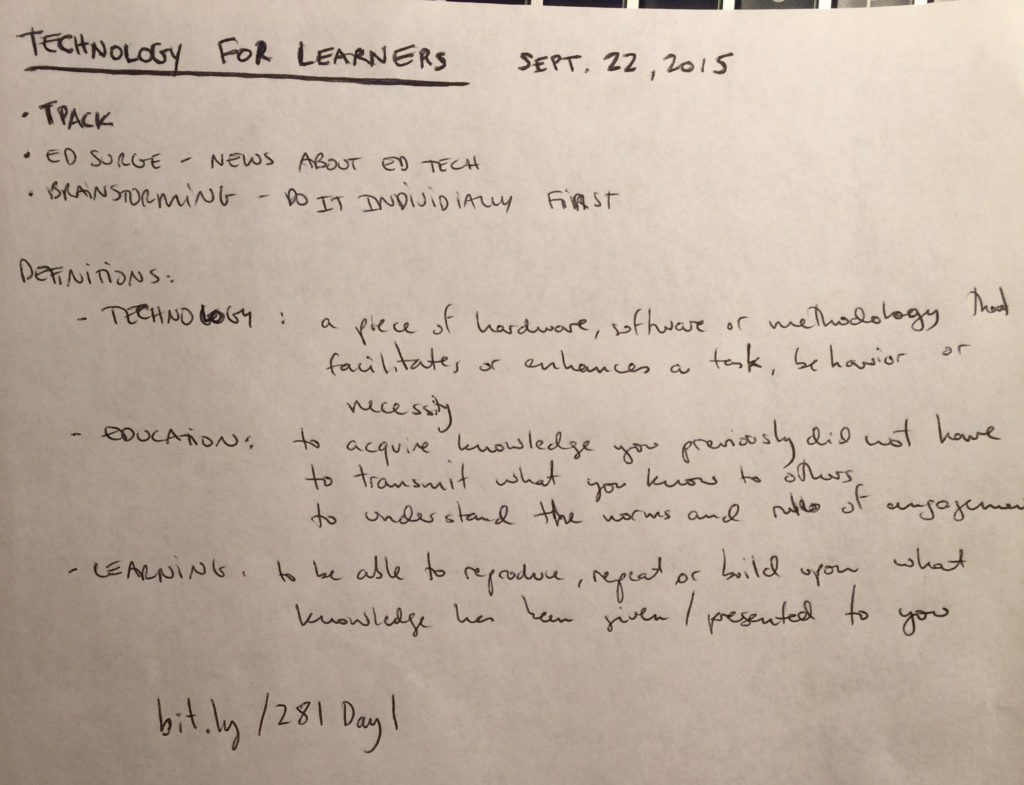 TECHNOLOGY FOR LEARNERS SEPT. 22, 2015
• TPACK
• ED SURGE - NEWS ABOUT ED TECH
• BRAINSTORMING - DO IT INDIVIDIALLY FIRST
DEFINITIONS:
- TECHNOLOGY : a piece of hardware, software or methodology that
facilitates or enhances a task, behavior or
necessity
- EDUCATION: to acquire knowledge you previously did not have
to transmit what you know to others,
to understand the norms and rules of engagemen
- LEARNING. to be able to reproduce, repeat or build upon what
knowledge has been given / presented to you
bit.ly /281 Day1